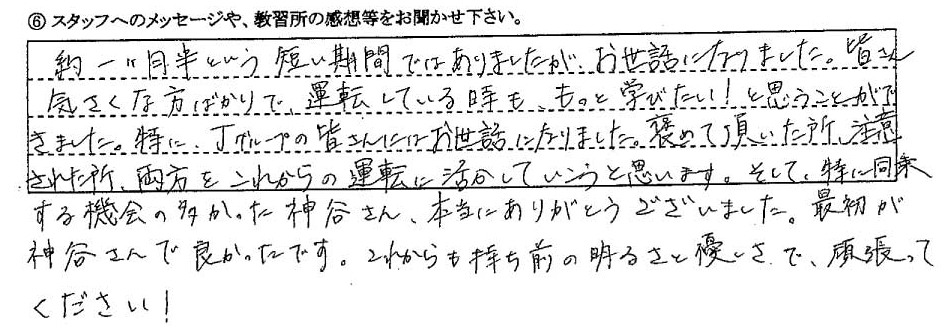 ⑥ スタッフへのメッセージや、教習所の感想等をお聞かせ下さい。
約一ヶ月半という短い期間ではありましたが、お世話になりました。皆さん
気さくな方ばかりで、運転している時も、もっと学びたい！と思うことがで
きました。特に、Jグループの皆さんにはお世話になりました。褒めて頂いた所、注意
された所、両方をこれからの運転に活かしていこうと思います。そして、特に同乗
する機会の多かった神谷さん、本当にありがとうございました。最初が
神谷さんで良かったです。これからも持ち前の明るさと優しさで、頑張って
ください！